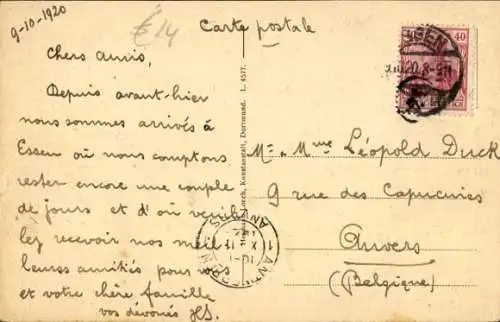 9-10-1920
€14
Carte postale
Chers amis,
Depuis avant-hier
nous sommes arrivés à
Essen où nous comptons
rester encore une couple
de jours et d'où veuil-
lez recevoir nos meil-
leures amitiés pour vous
et votre chère famille
vos dévoués HS.
Lorch, Kunstanstalt, Dortmund. L. 4577.
40
ESSEN
20.8-9
Mr & Mme Léopold Duck
9 rue des Capucines
Anvers
(Belgique)
ANTWERPEN
ANVERS